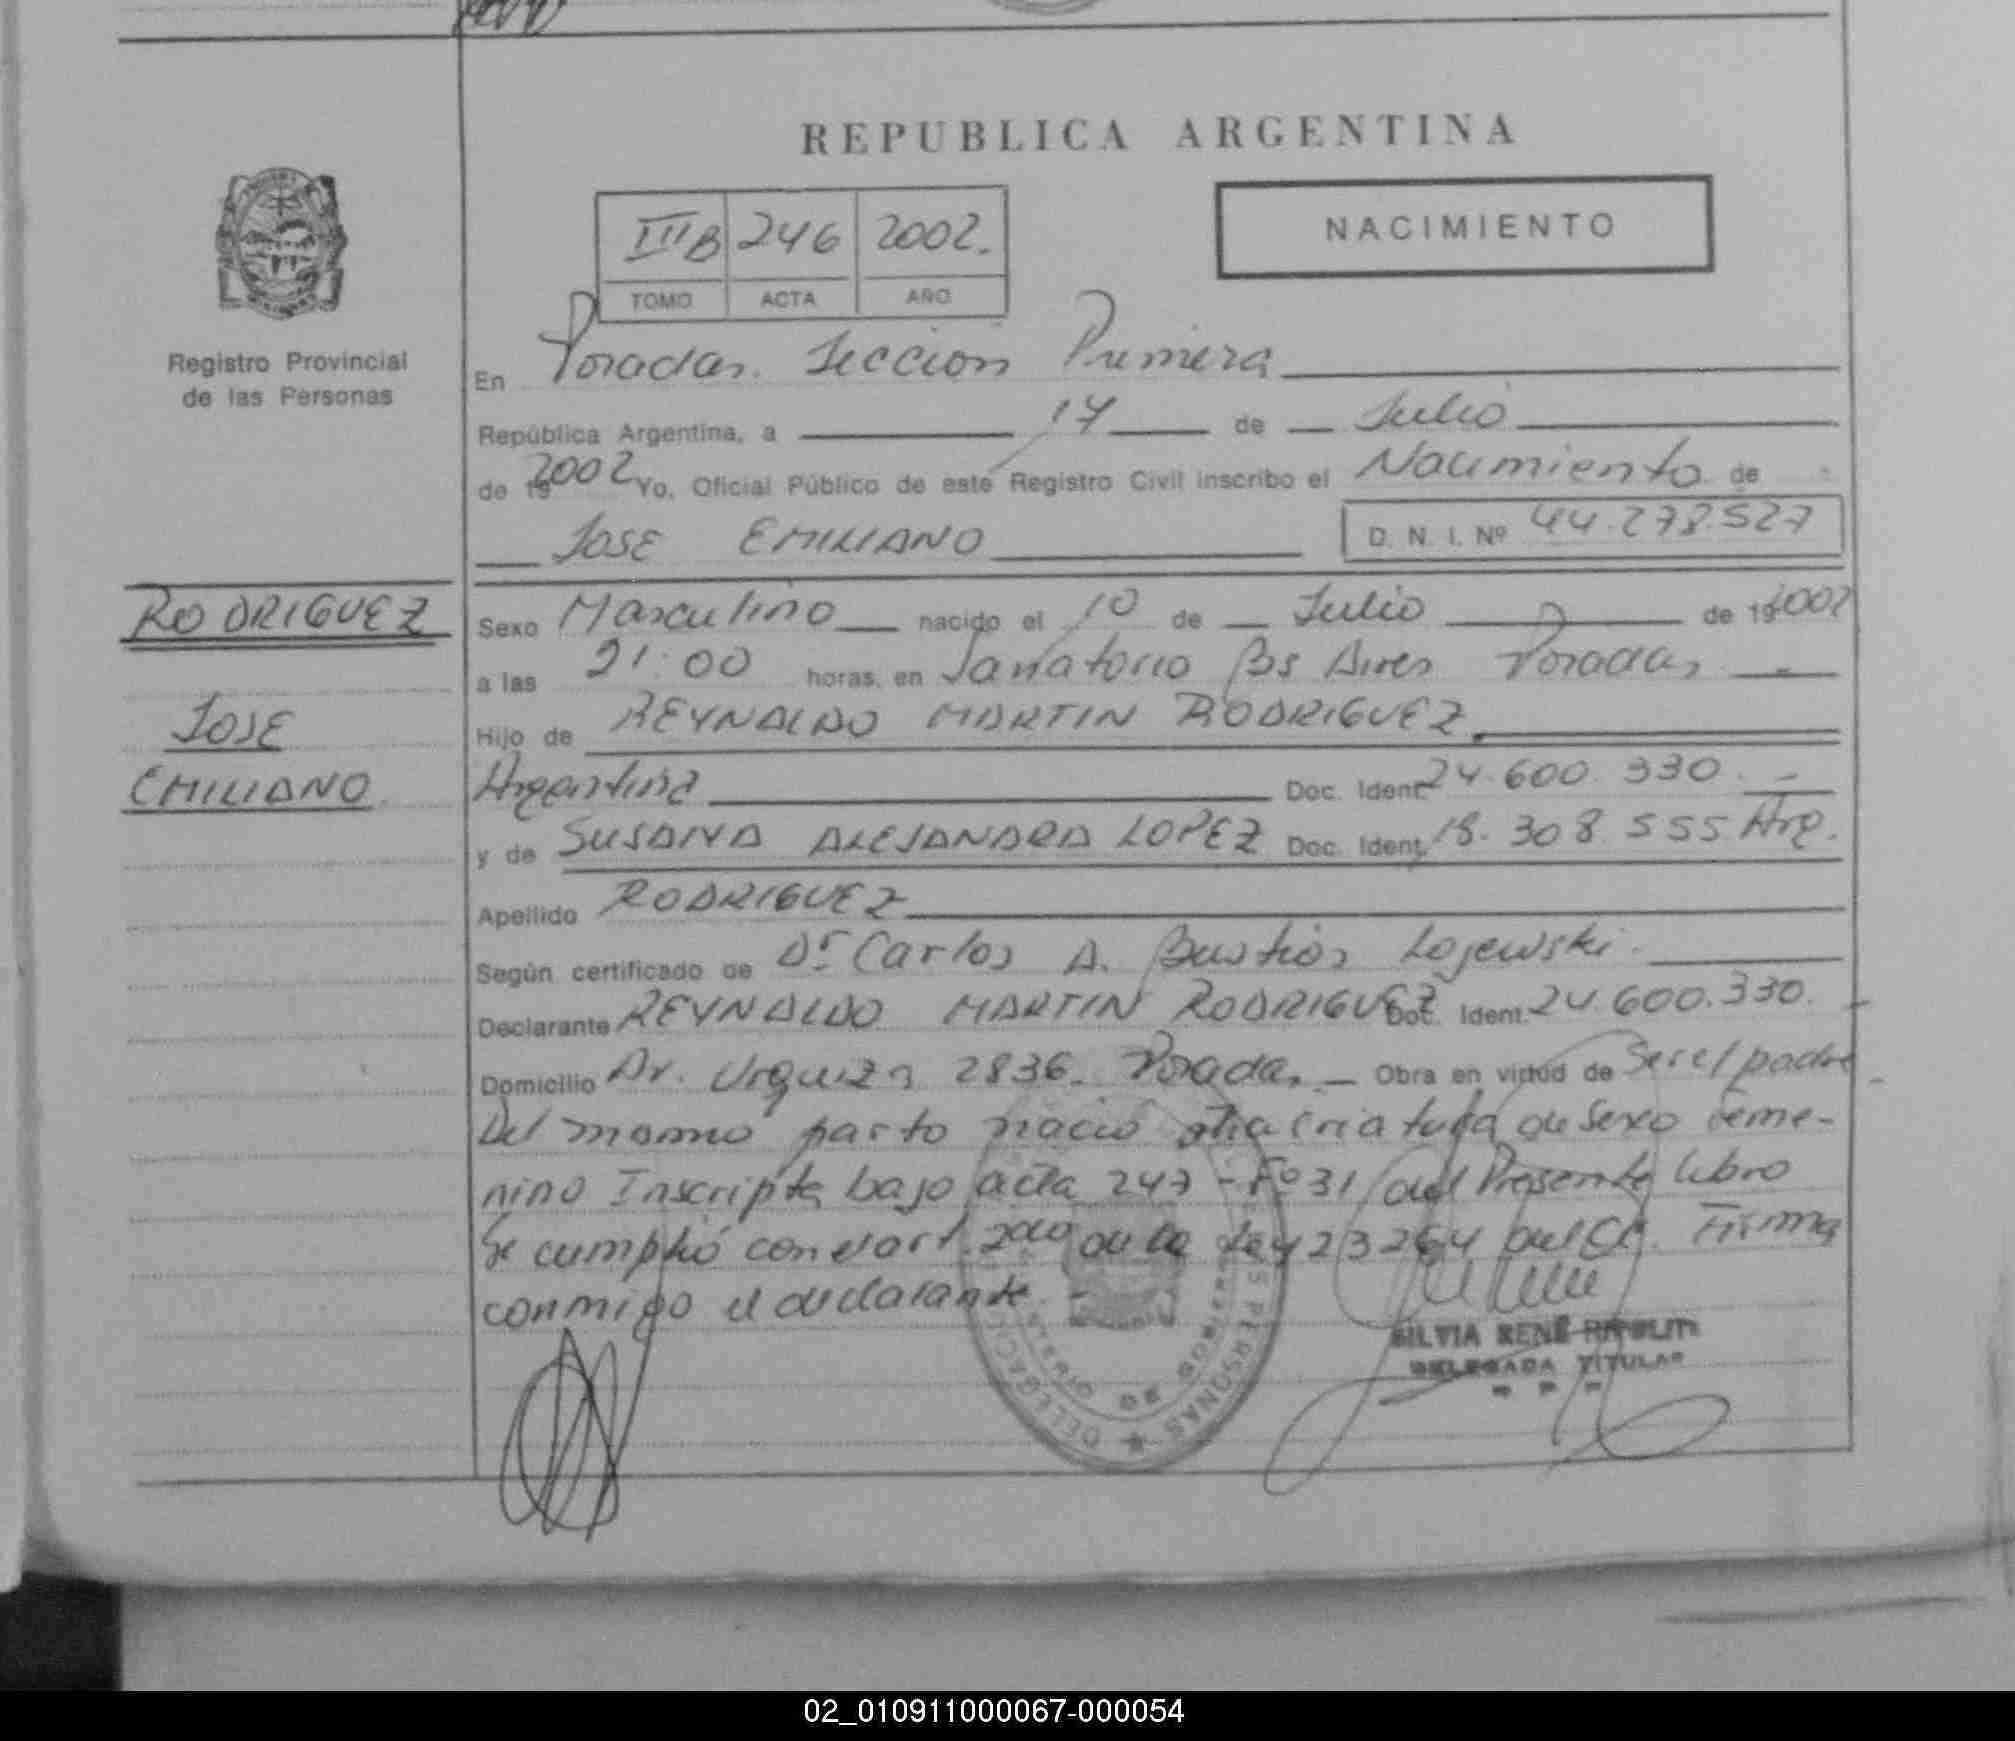 REPUBLICA ARGENTINA
IIIB 246 2002.
TOMO ACTA AÑO
NACIMIENTO
Registro Provincial
de las Personas
En Posadas. Seccion Primera
República Argentina, a 17 de Julio
de 19 2002 Yo, Oficial Público de este Registro Civil inscribo el Nacimiento de
JOSE EMILIANO D. N. I. Nº 44.278.527
RODRIGUEZ
JOSE
EMILIANO
Sexo Masculino nacido el 10 de Julio de 19 2002
a las 21:00 horas, en Sanatorio Bs Aires Posadas
Hijo de REYNALDO MARTIN RODRIGUEZ
Argentina Doc. Ident. 24.600.330.
y de SUSANA ALEJANDRA LOPEZ Doc. Ident. 18.308.555 Arg.
Apellido RODRIGUEZ
Según certificado de Dr. Carlos A. Bustios Lojewski.
Declarante REYNALDO MARTIN RODRIGUEZ Doc. Ident. 24.600.330.
Domicilio Av. Urquiza 2836. Posadas. Obra en virtud de Ser el padre
Del mismo parto nació otra criatura de Sexo feme-
nino Inscripta bajo acta 247 - Fº 31 del Presente libro
Se cumplió con el art. 2do de la Ley 23264 del CC. Firma
conmigo el declarante. -
SILVIA RENÉ
DELEGADA TITULAR
DELEGACION PERSONAS
02_010911000067-000054